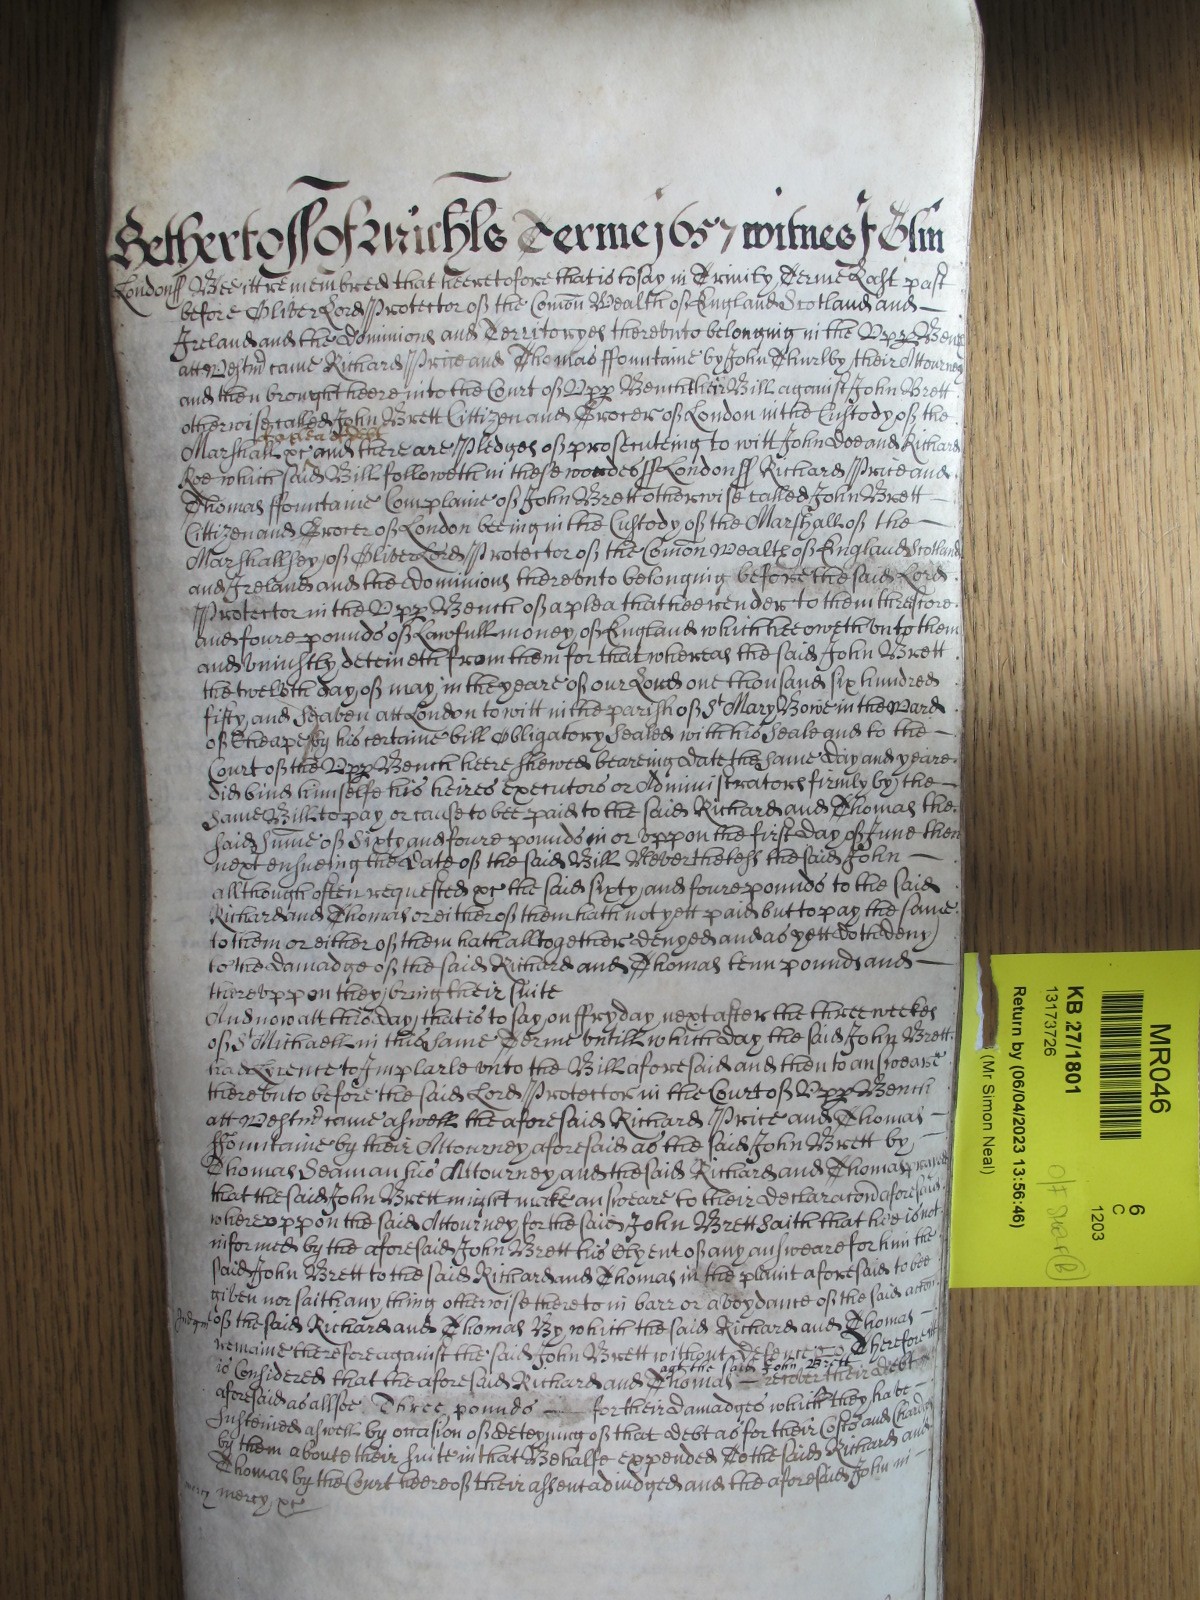 Yet hertoff of Michīs Terme 1657 witnes J Glin
Londonss Bee itt remembred that heeretofore that is to say in Trinity Terme Last past
before Oliver Lord Protector of the Com̄on Wealth of England Scotland and
Ireland and the Dominions and Territoryes therevnto belonging in the Vpp Bench
att Westmr came Richard Price and Thomas ffountaine by John Thurlby their Attourney
and then brought heere into the Court of Vpp Bench their Bill against John Brett
otherwise called John Brett Cittizen and Grocer of London in the Custody of the
of a plea of debt
Marshall &c and there are Pledges of prosecuteing to witt John Doe and Richard
Roe which said Bill followeth in these wordes ss Londonss Richard Price and
Thomas ffountaine Complaine of John Brett otherwise called John Brett
Cittizen and Grocer of London beeing in the Custody of the Marshall of the
Marshallsey of Oliver Lord Protector of the Com̄on wealth of England Scotland
and Ireland and the Dominions therevnto belonging before the said Lord
Protector in the Vpp Bench of a plea that hee render to them threscore
and foure pounds of Lawfull money of England which hee oweth vnto them
and vniustly deteineth from them for that whereas the said John Brett
the twelvth day of may in the yeare of our Lord one thousand six hundred
fifty and seaven att London to witt in the parish of St Mary Bowe in the ward
of Cheape by his certaine bill Obligatory sealed with his seale and to the
Court of the Vpp Bench heere shewed beareing date the same day and yeare
did bind himselfe his heires executors or Administrators firmly by the
same Bill to pay or cause to bee paid to the said Richard and Thomas the
said sum̄e of sixty and foure pounds in or vppon the first day of June then
next ensueing the date of the said Bill Neverthelesse the said John
allthough often requested &c the said sixty and foure pounds to the said
Richard and Thomas or either of them hath not yett paid but to pay the same
to them or either of them hath alltogether denyed and as yett doth deny
to the damadge of the said Richard and Thomas tenn pounds and
therevppon they bring their suite
And now att this day that is to say on ffryday next after the three weekes
of St Michaell in this same Terme vntill which day the said John Brett
had Licence to Imparle vnto the Bill aforesaid and then to answeare
therevnto before the said Lord Protector in the Court of Vpp Bench
att Westmr came aswell the aforesaid Richard Price and Thomas
ffountaine by their Attourney aforesaid as the said John Brett by
Thomas Seaman his Attourney and the said Richard and Thomas prayed
that the said John Brett might make answeare to their declaracon aforesaid
wherevppon the said Attourney for the said John Brett saith that hee is not
informed by the aforesaid John Brett his Clyent of any answeare for him the
said John Brett to the said Richard and Thomas in the plaint aforesaid to bee
given nor saith any thing otherwise thereto in barr or avoydance of the said action
Judgmt of the said Richard and Thomas By which the said Richard and Thomas
remaine therefore against the said John Brett without defence &c Therefore itt
agt the said John Brett
is Considered that the aforesaid Richard and Thomas recover their debt
aforesaid as allsoe Three pounds for their damadges which they have
susteined aswell by occasion of deteyning of that debt as for their Costs and Chardges
by them aboute their suite in that Behalfe expended To the said Richard and
Thomas by the Court heere of their assent adiudged and the aforesaid John in
mercy mercy &c
MR046
KB 27/1801
13173726
Return by (06/04/2023 13:56:46)
(Mr Simon Neal)
6
C
1203